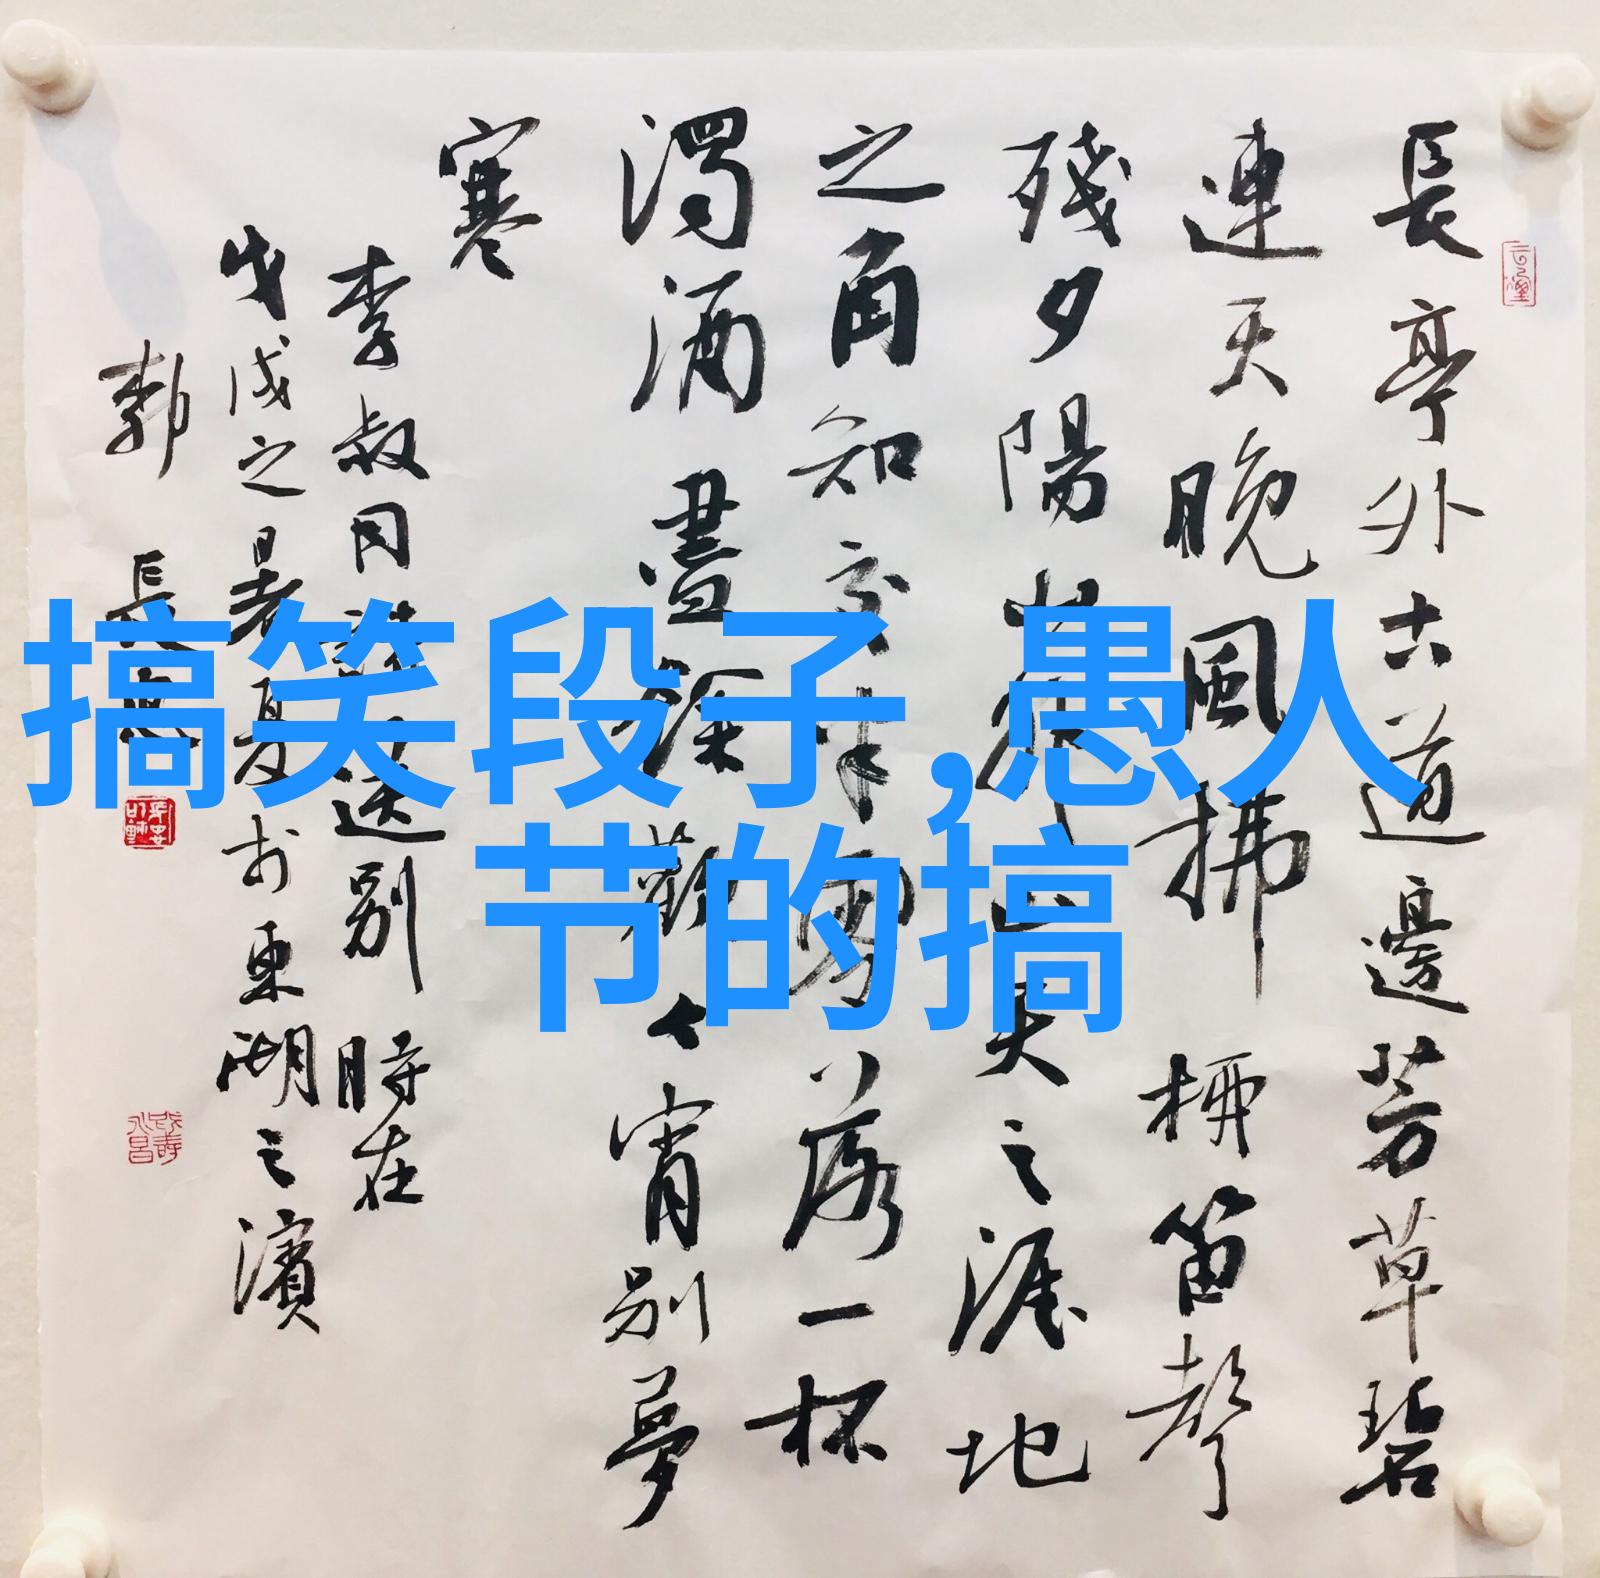 長亭外古道邊芳草碧
連天晚風拂柳笛聲
殘夕陽山外山天之涯地
之角知交半零落一杯
濁酒盡餘歡今宵別夢
寒
李叔同詩送別 時在
戊戌之暑夏於東湖之濱
搞笑段子,愚人
节的搞